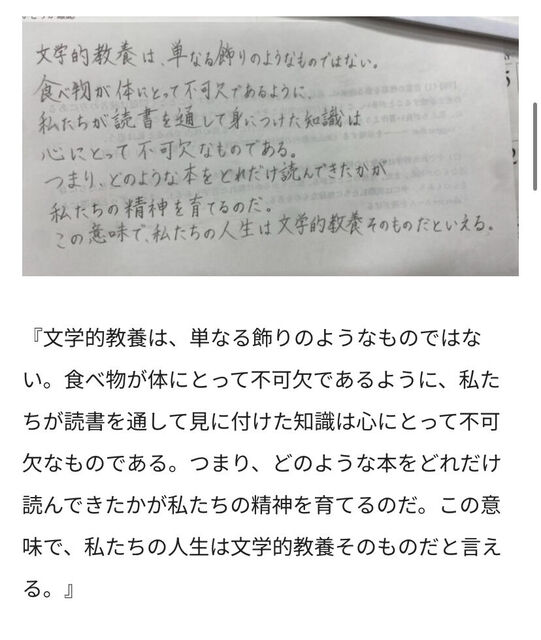 文学的教養は、単なる飾りのようなものではない。
食べ物が体にとって不可欠であるように、
私たちが読書を通して身につけた知識は
心にとって不可欠なものである。
つまり、どのような本をどれだけ読んできたかが
私たちの精神を育てるのだ。
この意味で、私たちの人生は文学的教養そのものだといえる。
『文学的教養は、単なる飾りのようなものではな
い。食べ物が体にとって不可欠であるように、私た
ちが読書を通して見に付けた知識は心にとって不可
欠なものである。つまり、どのような本をどれだけ
読んできたかが私たちの精神を育てるのだ。この意
味で、私たちの人生は文学的教養そのものだと言え
る。』